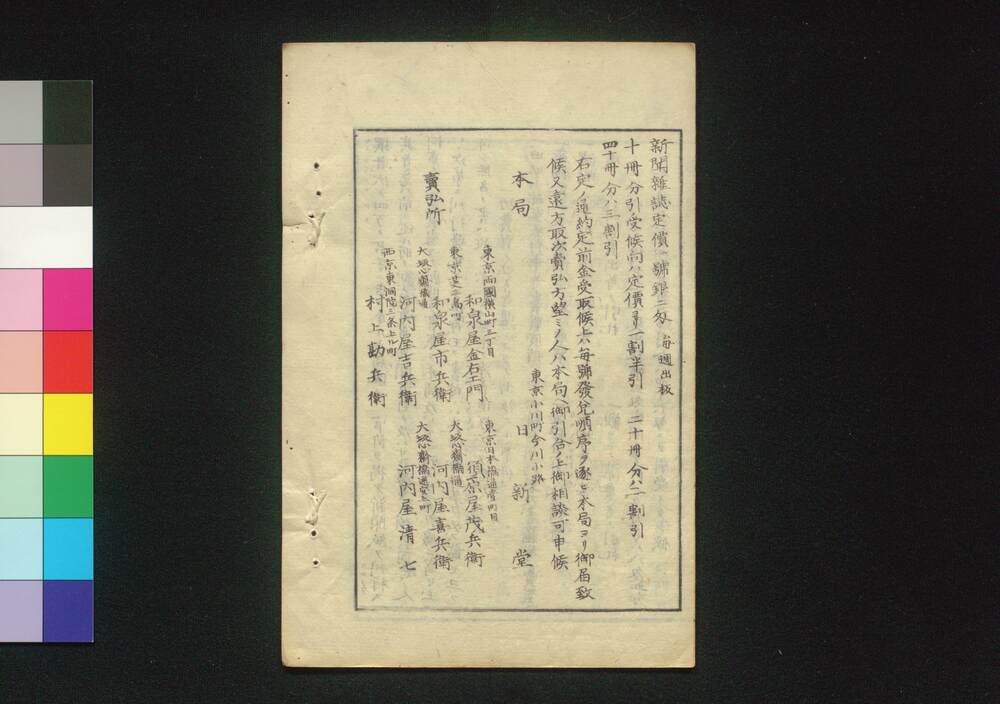 新聞雜誌定價一號銀二匁 每週出板
十冊分引受候向ハ定價ヨリ一割半引 二十冊分ハ二割引
四十冊分ハ三割引
右定ノ通約定前金受取候上ハ每號發兌順序ヲ逐ヒ本局ヨリ御届致
候又遠方取次賣弘方望ミノ人ハ本局ヘ御引合ノ上御相談可申候
東京小川町今川小路
本局 日新堂
賣弘所
東京兩國橫山町三丁目
和泉屋金右エ門
東京日本橋通壹町目
須原屋茂兵衞
東京芝三島町
和泉屋市兵衞
大坂心齋橋通
河内屋喜兵衞
大坂心齋橋通
河内屋吉兵衞
大坂心齋橋通安土町
河内屋清七
西京東洞院三条上ル町
村上勘兵衞